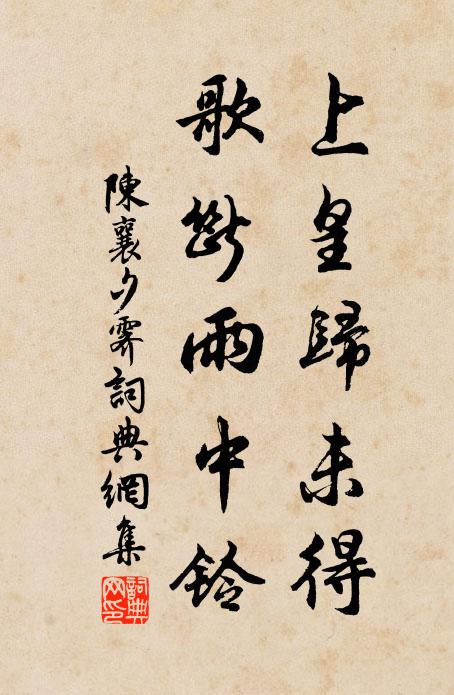 上皇歸未得
歌斷雨中鈴
陳襄夕霽詞典網集
詞典